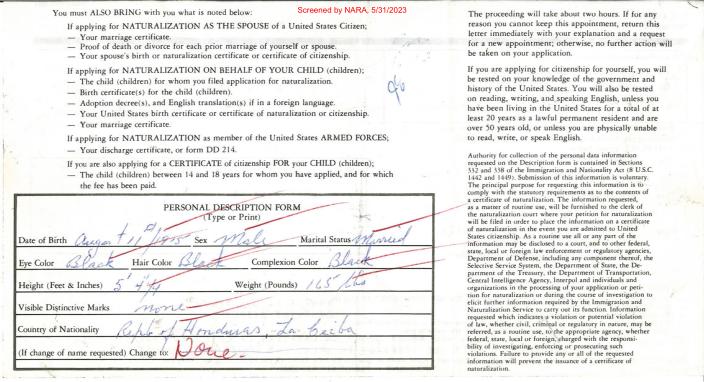 Screened by NARA, 5/31/2023
You must ALSO BRING with you what is noted below:
If applying for NATURALIZATION AS THE SPOUSE of a United States Citizen;
— Your marriage certificate.
— Proof of death or divorce for each prior marriage of yourself or spouse.
— Your spouse's birth or naturalization certificate or certificate of citizenship.
If applying for NATURALIZATION ON BEHALF OF YOUR CHILD (children);
— The child (children) for whom you filed application for naturalization.
— Birth certificate(s) for the child (children).
— Adoption decree(s), and English translation(s) if in a foreign language.
— Your United States birth certificate or certificate of naturalization or citizenship.
— Your marriage certificate.
If applying for NATURALIZATION as member of the United States ARMED FORCES;
— Your discharge certificate, or form DD 214.
If you are also applying for a CERTIFICATE of citizenship FOR your CHILD (children);
— The child (children) between 14 and 18 years for whom you have applied, and for which
the fee has been paid.
PERSONAL DESCRIPTION FORM
(Type or Print)
Date of Birth August 11 Sex Male Marital Status Married
Eye Color Black Hair Color Black Complexion Color Black
Height (Feet & Inches) 5' 4 Weight (Pounds) 165 lbs
Visible Distinctive Marks none
Country of Nationality Repb of Honduras, La Ceiba
(If change of name requested) Change to: None
The proceeding will take about two hours. If for any
reason you cannot keep this appointment, return this
letter immediately with your explanation and a request
for a new appointment; otherwise, no further action will
be taken on your application.
If you are applying for citizenship for yourself, you will
be tested on your knowledge of the government and
history of the United States. You will also be tested
on reading, writing, and speaking English, unless you
have been living in the United States for a total of at
least 20 years as a lawful permanent resident and are
over 50 years old, or unless you are physically unable
to read, write, or speak English.
Authority for collection of the personal data information
requested on the Description form is contained in Sections
332 and 338 of the Immigration and Nationality Act (8 U.S.C.
1442 and 1449). Submission of this information is voluntary.
The principal purpose for requesting this information is to
comply with the statutory requirements as to the contents of
a certificate of naturalization. The information requested,
as a matter of routine use, will be furnished to the clerk of
the naturalization court where your petition for naturalization
will be filed in order to place the information on a certificate
of naturalization in the event you are admitted to United
States citizenship. As a routine use all or any part of the
information may be disclosed to a court, and to other federal,
state, local or foreign law enforcement or regulatory agencies,
Department of Defense, including any component thereof, the
Selective Service System, the Department of State, the De-
partment of the Treasury, the Department of Transportation,
Central Intelligence Agency, Interpol and individuals and
organizations in the processing of your application or peti-
tion for naturalization or during the course of investigation to
elicit further information required by the Immigration and
Naturalization Service to carry out its function. Information
requested which indicates a violation or potential violation
of law, whether civil, criminal or regulatory in nature, may be
referred, as a routine use, to the appropriate agency, whether
federal, state, local or foreign, charged with the responsi-
bility of investigating, enforcing or prosecuting such
violations. Failure to provide any or all of the requested
information will prevent the issuance of a certificate of
naturalization.